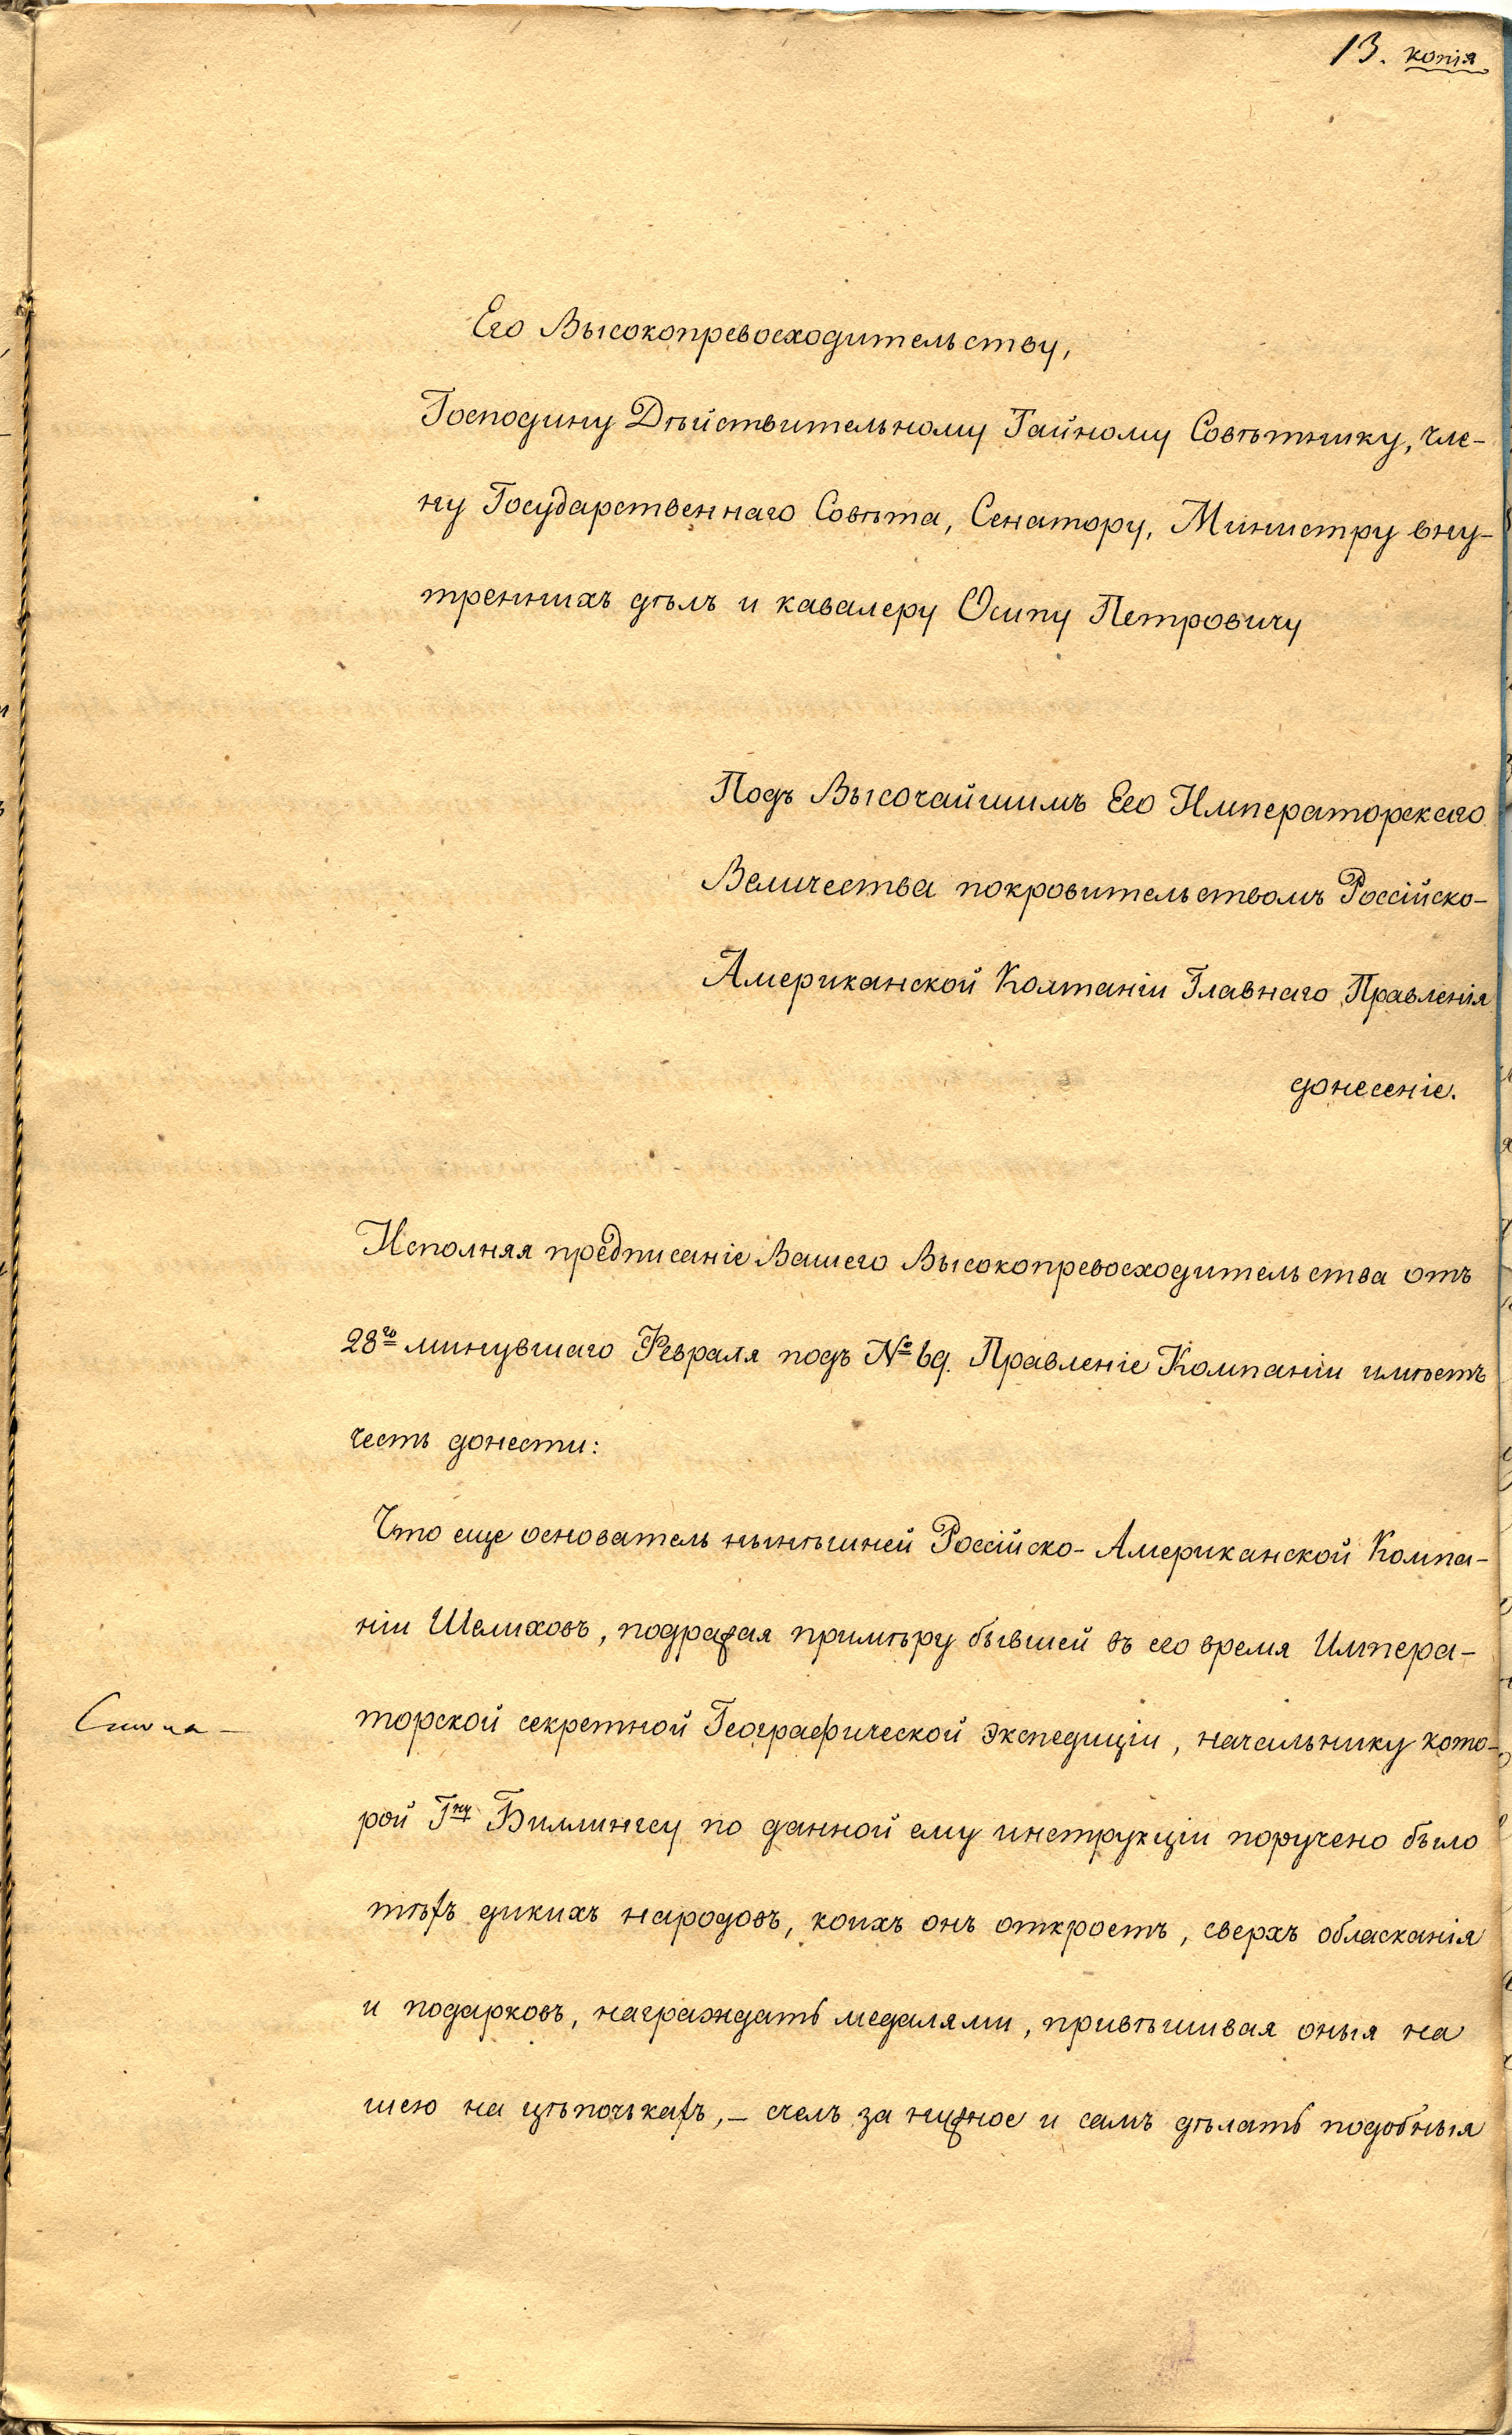 13. копія
Его Высокопревосходительству,
Господину Дѣйствительному Тайному Совѣтнику, чле-
ну Государственнаго Совѣта, Сенатору, Министру вну-
треннихъ дѣлъ и кавалеру Осипу Петровичу
Подъ Высочайшимъ Его Императорскаго
Величества покровительствомъ Россійско-
Американской Компаніи Главнаго Правленія
донесеніе.
Исполняя предписаніе Вашего Высокопревосходительства отъ
28го минувшаго Февраля подъ № 69. Правленіе Компаніи имѣетъ
честь донести:
Что еще основатель нынѣшней Россійско-Американской Компа-
ніи Шелиховъ, подражая примѣру бывшей въ его время Импера-
торской секретной Географической Экспедиціи, начальнику кото-
рой Гну Биллингсу по данной ему инструкціи поручено было
тѣхъ дикихъ народовъ, коихъ онъ откроетъ, сверхъ обласканія
и подарковъ, награждать медалями, привѣшивая оныя на
шею на цѣпочькахъ,- счелъ за нужное и самъ дѣлать подобныя